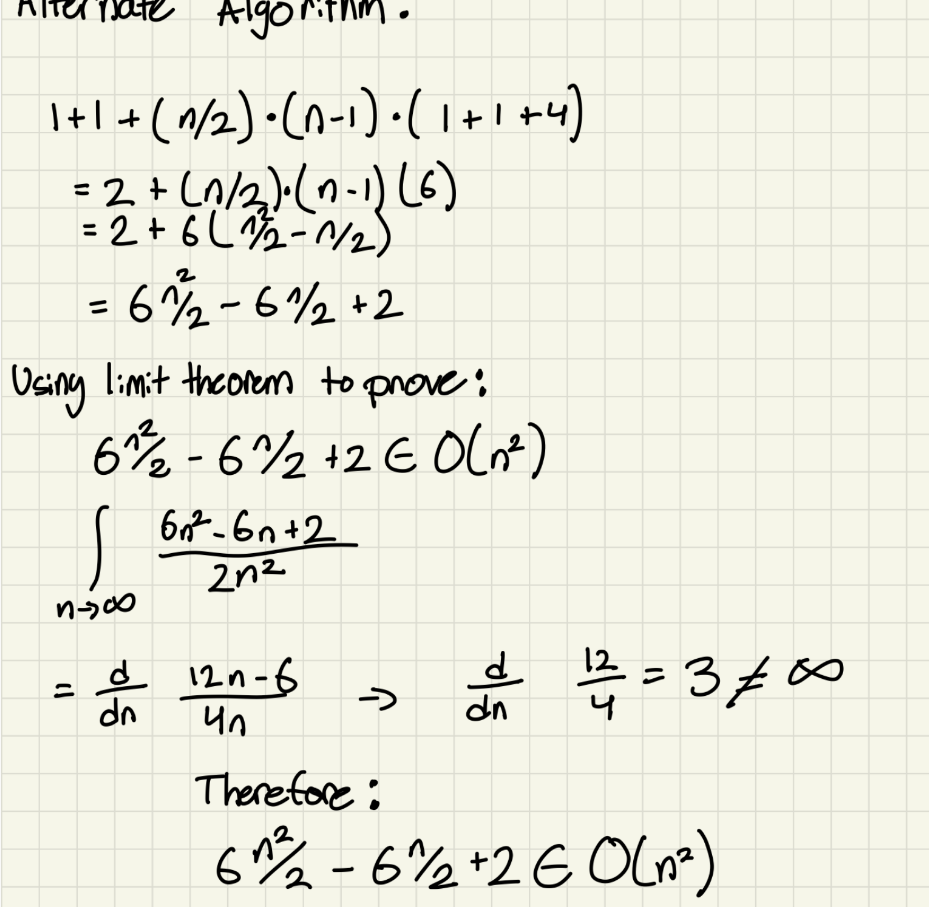 Alternate Algorithm.
1+1+(n/2)·(n-1)·(1+1+4)
= 2 + (n/2)·(n-1)(6)
= 2 + 6(n²/2 - n/2)
= 6 n²/2 - 6 n/2 + 2
Using limit theorem to prove:
6 n²/2 - 6 n/2 + 2 ∈ O(n²)
∫ n→∞ (6n² - 6n + 2)/(2n²)
= d/dn (12n - 6)/(4n) → d/dn 12/4 = 3 ≠ ∞
Therefore:
6 n²/2 - 6 n/2 + 2 ∈ O(n²)